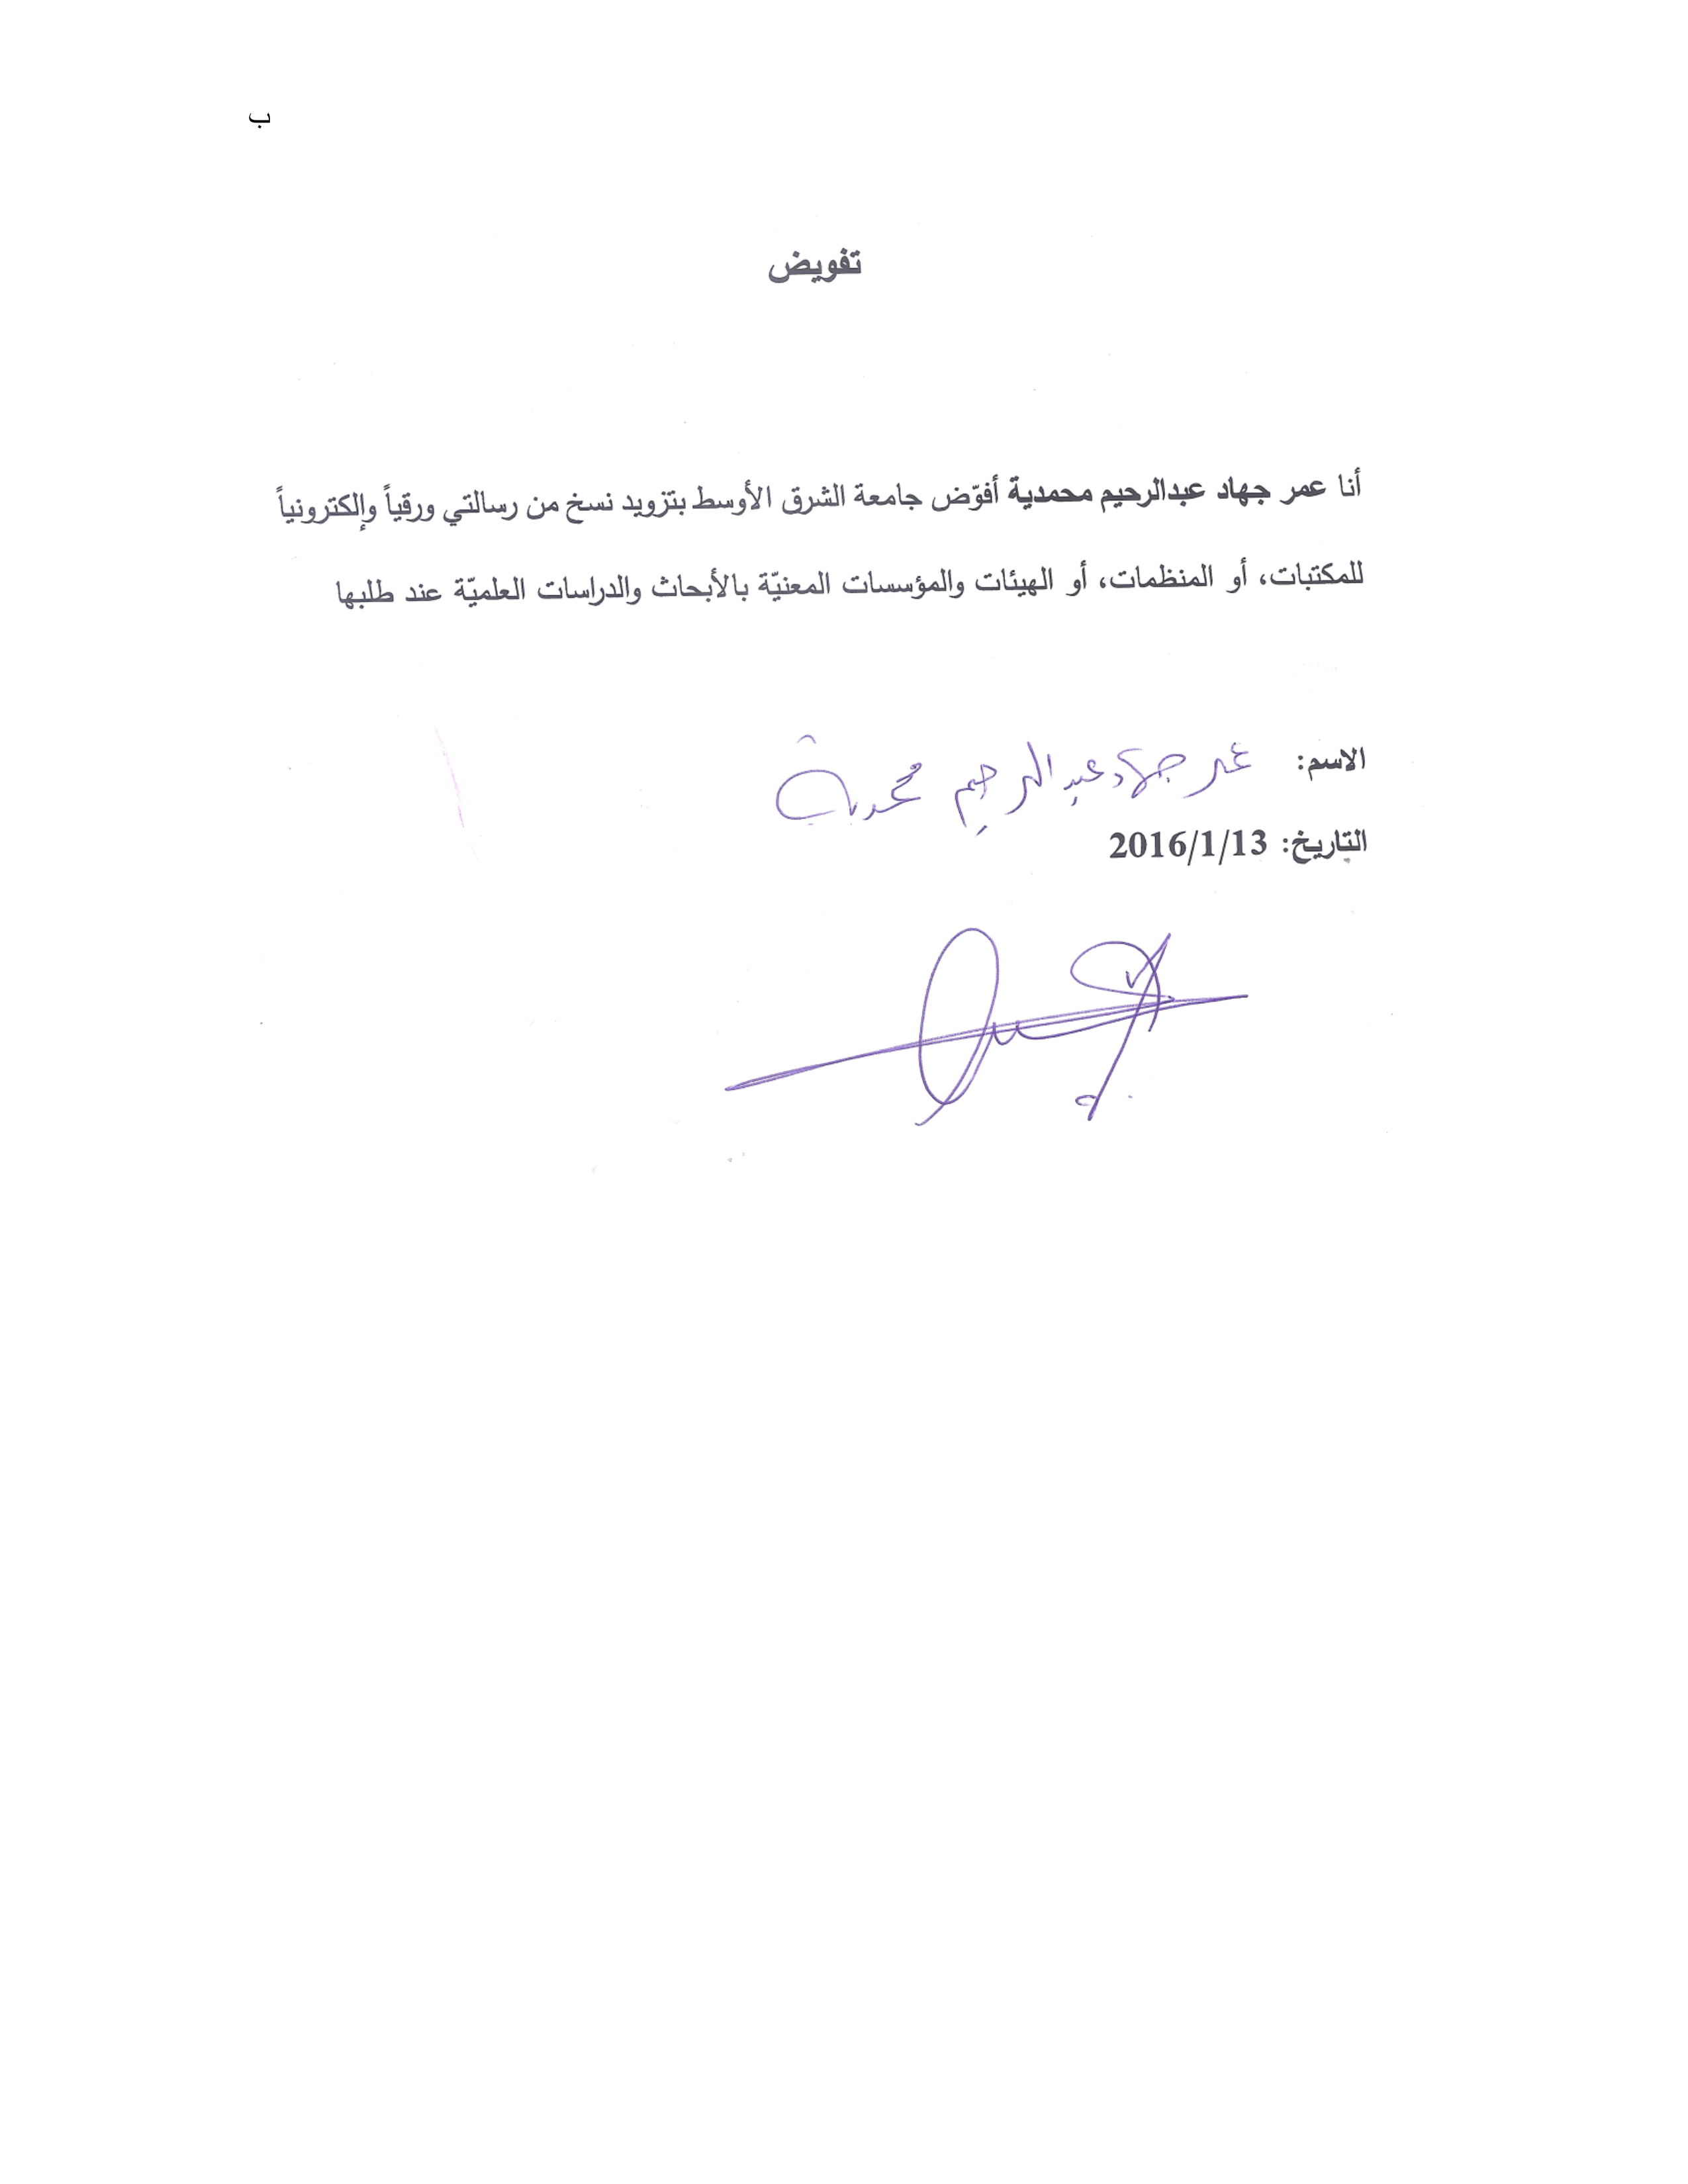 ب
تفويض
أنا عمر جهاد عبدالرحيم محمدية أفوّض جامعة الشرق الأوسط بتزويد نسخ من رسالتي ورقياً وإلكترونياً
للمكتبات، أو المنظمات، أو الهيئات والمؤسسات المعنيّة بالأبحاث والدراسات العلميّة عند طلبها
الاسم: عمر جهاد عبد الرحيم محمدية
التاريخ: 2016/1/13